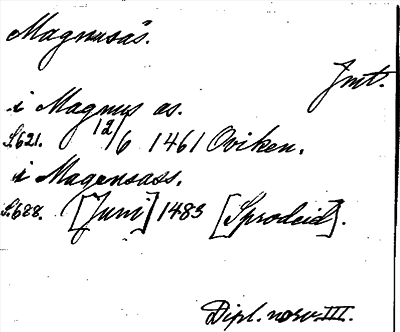 Magnusås.
Jmt.
i Magnus as.
S.621. 12/6 1461 Oviken.
i Magensass.
S.688. [Juni] 1483 [Sprodeid].
Dipl. norv. III.